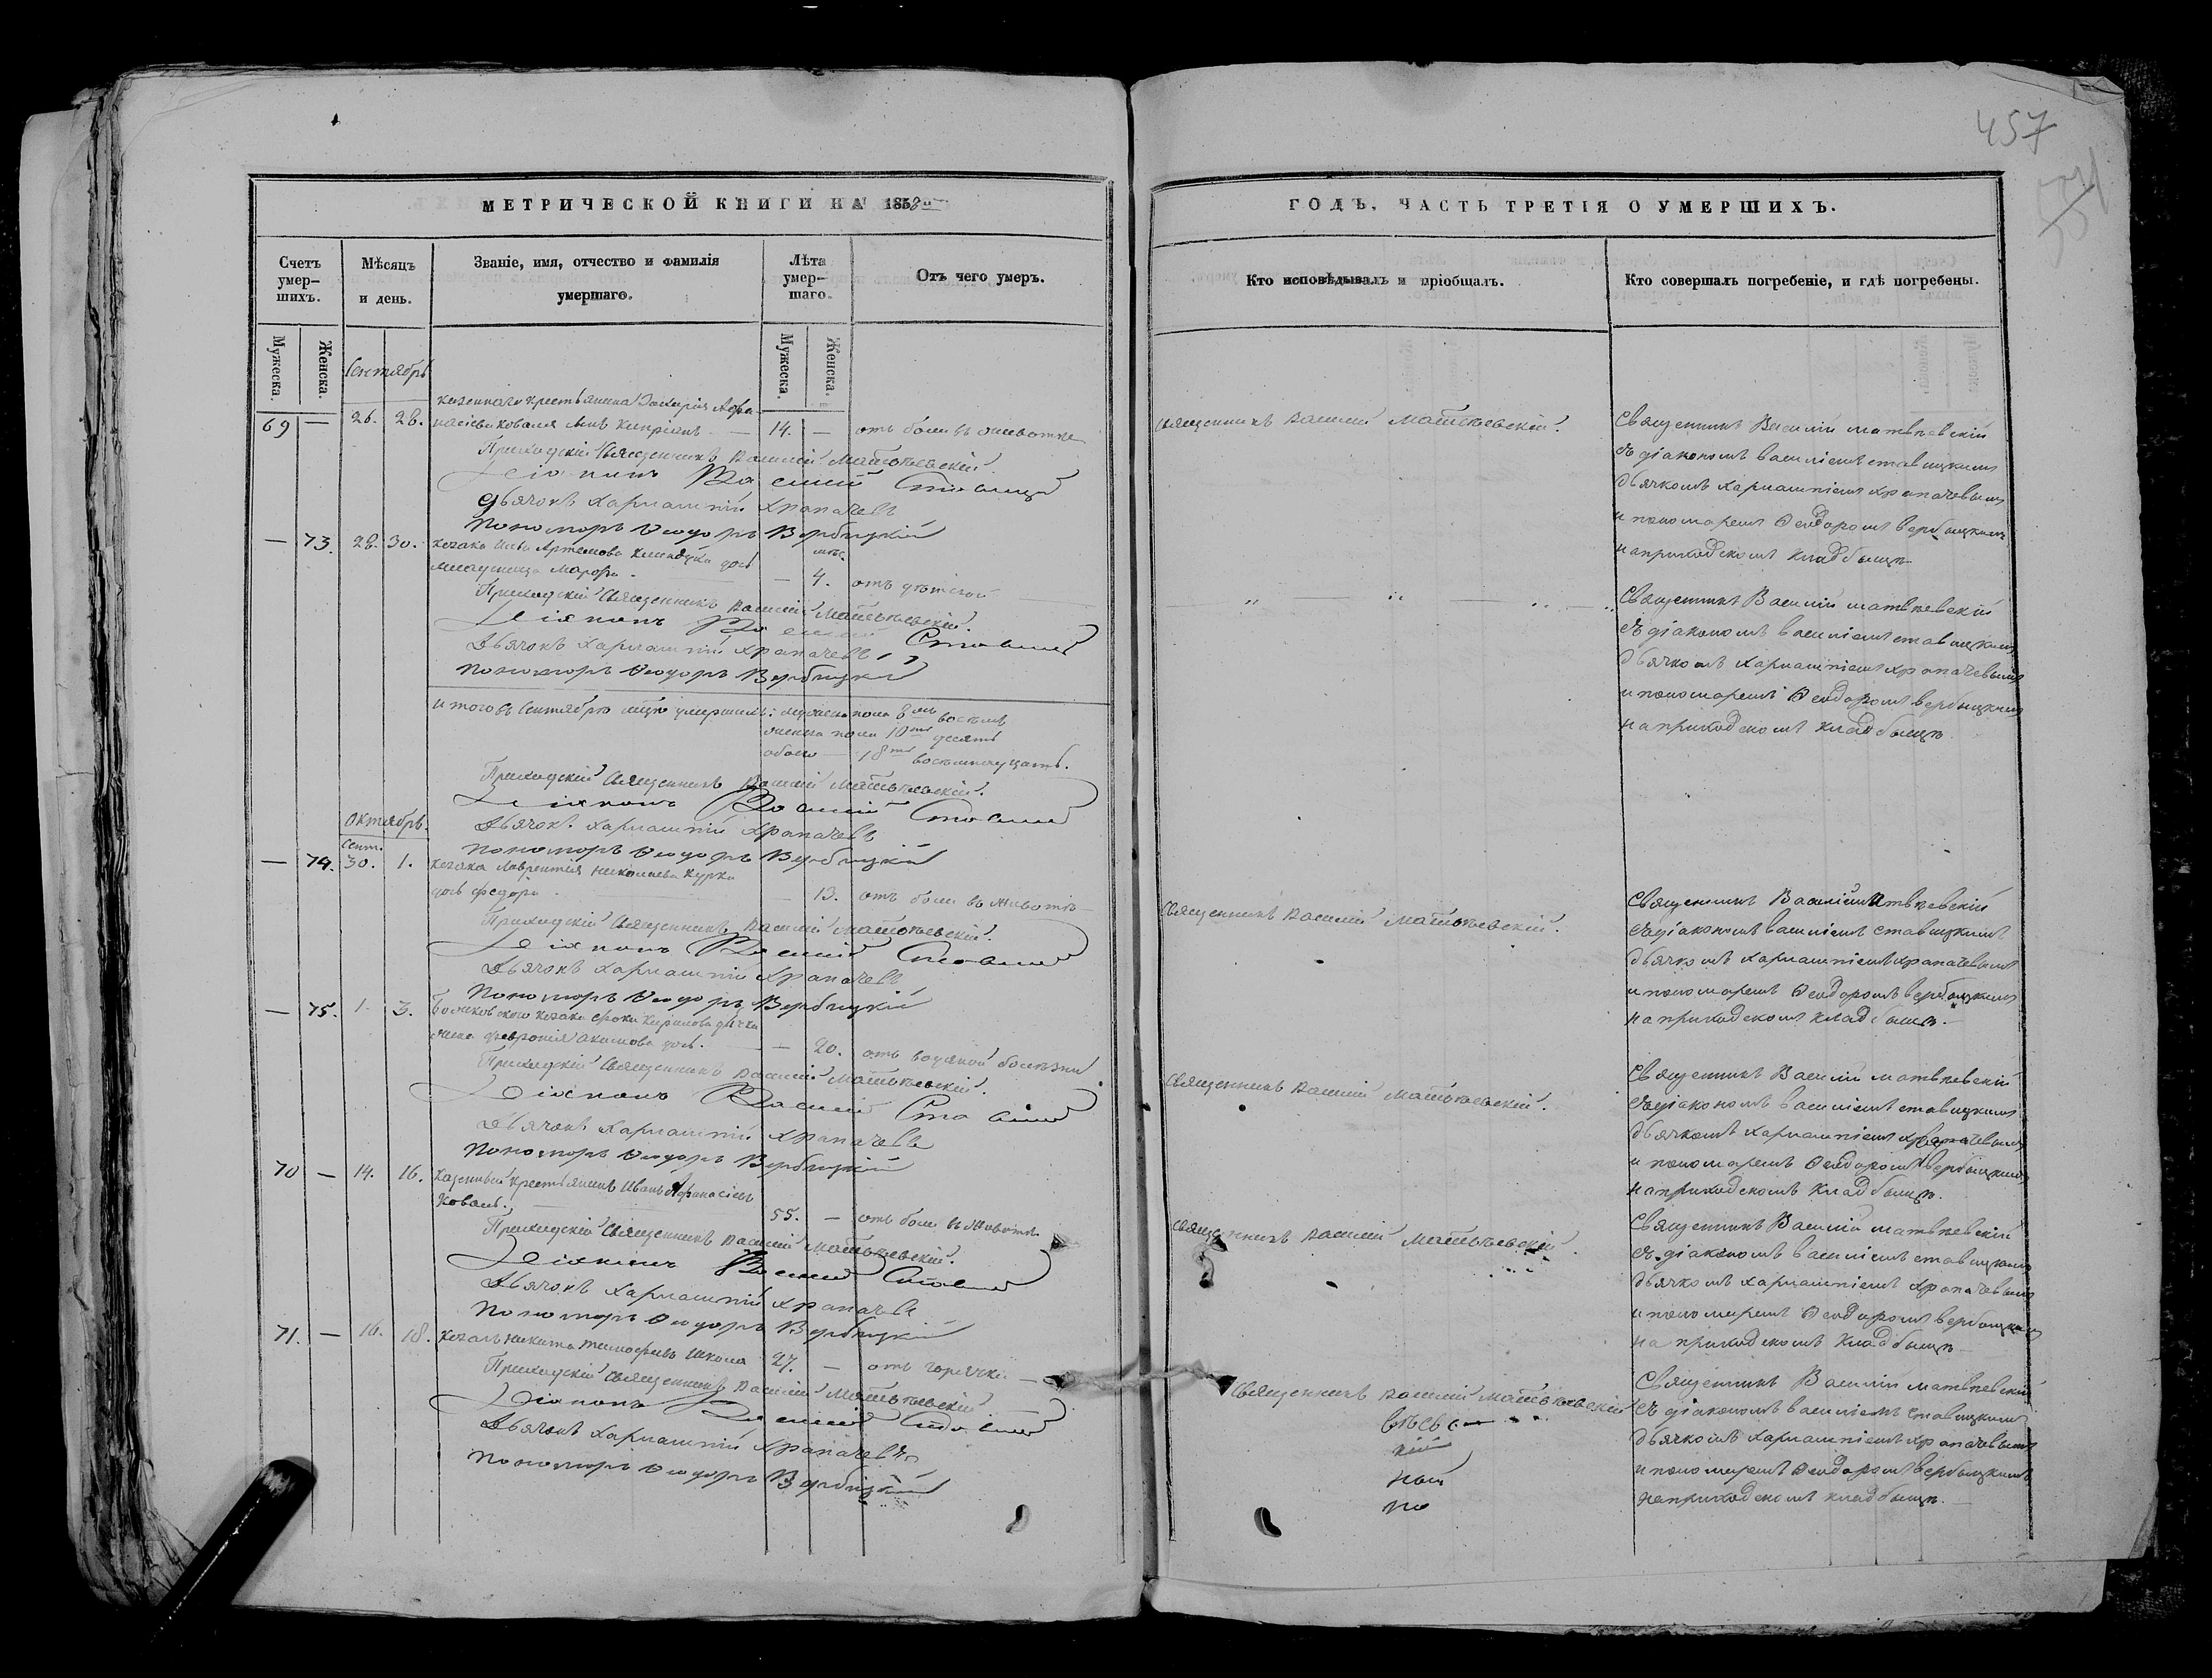 457
МЕТРИЧЕСКОЙ КНИГИ НА 1858й
ГОДЪ, ЧАСТЬ ТРЕТІЯ О УМЕРШИХЪ.
Счетъ умер-
шихъ.
Мѣсяцъ
и день.
Званіе, имя, отчество и фамилія
умершаго.
Лѣта
умер-
шаго.
Отъ чего умеръ.
Кто исповѣдывалъ и пріобщалъ.
Кто совершалъ погребеніе, и гдѣ погребены.
Мужеска.
Женска.
Мужеска.
Женска.
Сентябрь
казеннаго крестьянина Захарія Афа-
69 — 26. 28. насіева Коваля сынъ Кипріанъ — 14. — отъ боли въ животѣ
Приходскій Священникъ Василій Матвѣевскій
Діаконъ Василій
Дьячокъ Харлампій Храпачевъ
Пономарь Ѳеодоръ Вербицкій
Священникъ Василій Матвѣевскій.
Священникъ Василій Матвѣевскій
съ діакономъ Василіемъ Ставицкимъ
дьячкомъ Харлампіемъ Храпачевымъ
и пономаремъ Ѳеодоромъ Вербицкимъ
на приходскомъ кладбищѣ
— 73. 28. 30. козака Артемова дочь
младеница Марфа — 4. отъ
мѣс.
Приходскій Священникъ Василій Матвѣевскій.
Діаконъ Василій
Дьячокъ Харлампій Храпачевъ
Пономарь Ѳеодоръ Вербицкій
Священникъ Василій Матвѣевскій
съ діакономъ Василіемъ Ставицкимъ
дьячкомъ Харлампіемъ Храпачевымъ
и пономаремъ Ѳеодоромъ Вербицкимъ
на приходскомъ кладбищѣ.
Итого въ Сентябрѣ умершихъ: мужеска пола 8мь восемь
женска пола 10ть десять
обоего — 18ть восемнадцать.
Приходскій Священникъ Василій Матвѣевскій.
Діаконъ Василій
Дьячокъ Харлампій Храпачевъ
Пономарь Ѳеодоръ Вербицкій
Октябрь.
Сент.
— 74. 30. 1. козака Лаврентія Николаева Курка
дочь Федора — 13. отъ боли въ животѣ
Приходскій Священникъ Василій Матвѣевскій.
Діаконъ Василій
Дьячокъ Харлампій Храпачевъ
Пономарь Ѳеодоръ Вербицкій
Священникъ Василій Матвѣевскій.
Священникъ Василій Матвѣевскій
съ діакономъ Василіемъ Ставицкимъ
дьячкомъ Харлампіемъ Храпачевымъ
и пономаремъ Ѳеодоромъ Вербицкимъ
на приходскомъ кладбищѣ.
— 75. 1. 3. козака Кирилова
жена Февронія Акимова дочь. — 20. отъ водяной болѣзни
Приходскій Священникъ Василій Матвѣевскій.
Діаконъ Василій
Дьячокъ Харлампій Храпачевъ
Пономарь Ѳеодоръ Вербицкій
Священникъ Василій Матвѣевскій.
Священникъ Василій Матвѣевскій
съ діакономъ Василіемъ Ставицкимъ
дьячкомъ Харлампіемъ Храпачевымъ
и пономаремъ Ѳеодоромъ Вербицкимъ
на приходскомъ кладбищѣ.
70 — 14. 16. казенный крестьянинъ Иванъ Афанасіевъ
Коваль. 55. — отъ боли въ животѣ
Приходскій Священникъ Василій Матвѣевскій.
Діаконъ Василій
Дьячокъ Харлампій Храпачевъ
Пономарь Ѳеодоръ Вербицкій
Священникъ Василій Матвѣевскій.
Священникъ Василій Матвѣевскій
съ діакономъ Василіемъ Ставицкимъ
дьячкомъ Харлампіемъ Храпачевымъ
и пономаремъ Ѳеодоромъ Вербицкимъ
на приходскомъ кладбищѣ
71. — 16. 18. козакъ Никита Тимофѣевъ Школа 27. — отъ горячки
Приходскій Священникъ Василій Матвѣевскій
Діаконъ Василій
Дьячокъ Харлампій Храпачевъ
Пономарь Ѳеодоръ Вербицкій
Священникъ Василій Матвѣевскій
ной
по
Священникъ Василій Матвѣевскій
съ діакономъ Василіемъ Ставицкимъ
дьячкомъ Харлампіемъ Храпачевымъ
и пономаремъ Ѳеодоромъ Вербицкимъ
на приходскомъ кладбищѣ.